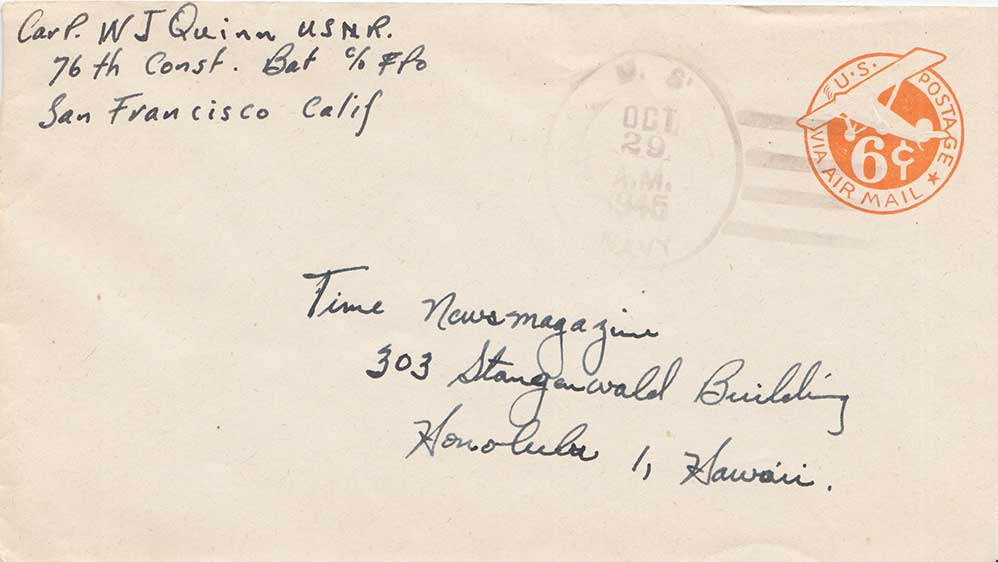 Carp. W J Quinn USNR.
76th Const. Bat c/o FPO
San Francisco Calif
U. S.
OCT
29
A.M.
1945
NAVY
U.S. POSTAGE
6¢
VIA AIR MAIL
Time Newsmagazine
303 Stangenwald Building
Honolulu 1, Hawaii.